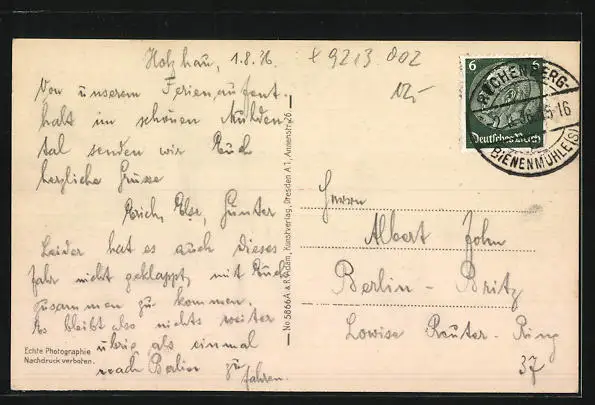 Holzhau, 1.8.36
Von unserem Ferienaufent-
halt im schönen Mulden
tal senden wir Euch
herzliche Grüsse
Erich, Else, Günter
Leider hat es auch dieses
Jahr nicht geklappt, mit Euch
zusammen zu kommen.
Es bleibt also nichts weiter
übrig, als einmal
nach Berlin zu
fahren.
Echte Photographie
Nachdruck verboten.
No 5866A a.R. Adam, Kunstverlag, Dresden A.1, Annenstr. 26
9213 002
6 6
Deutsches Reich
RECHENBERG-
BIENENMÜHLE(S)
Herrn
Albert John
Berlin-Britz
Lowise Reuter-Ring
37